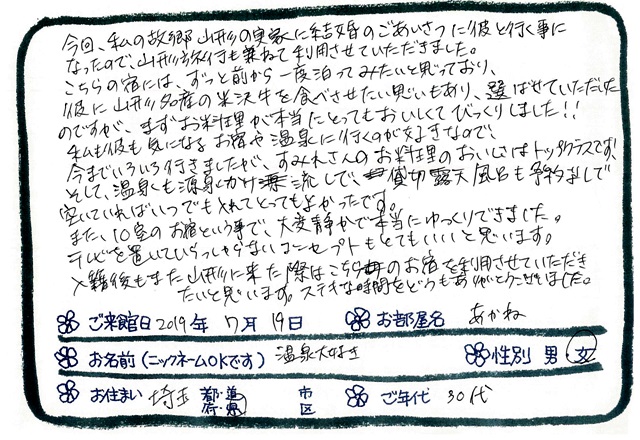 今回、私の故郷 山形の実家に結婚のごあいさつに彼と行く事に
なったので、山形旅行も兼ねて利用させていただきました。
こちらの宿には、ずっと前から一度泊ってみたいと思っており、
彼に山形名産の米沢牛を食べさせたい思いもあり、選ばせていただいた
のですが、まずお料理が本当にとってもおいしくてびっくりしました!!
私も彼も気になるお宿や温泉に行くのが好きなので、
今までいろいろ行きましたが、すみれさんのお料理のおいしさはトップクラスです。
そして、温泉も源泉かけ流しで、貸切露天風呂も予約なしで
空いていればいつでも入れてとってもよかったです。
また、10室のお宿という事で、大変静かで本当にゆっくりできました。
テレビを置いていらっしゃらないコンセプトもとてもいいと思います。
入籍後もまた山形に来た際はこちらのお宿を利用させていただき
たいと思います。ステキな時間をどうもありがとうございました。
ご来館日 2019年 7月 19日 お部屋名 あかね
お名前(ニックネームOKです) 温泉大好き 性別 男・女
お住まい 埼玉 都・道 府・県 市 区 ご年代 30代